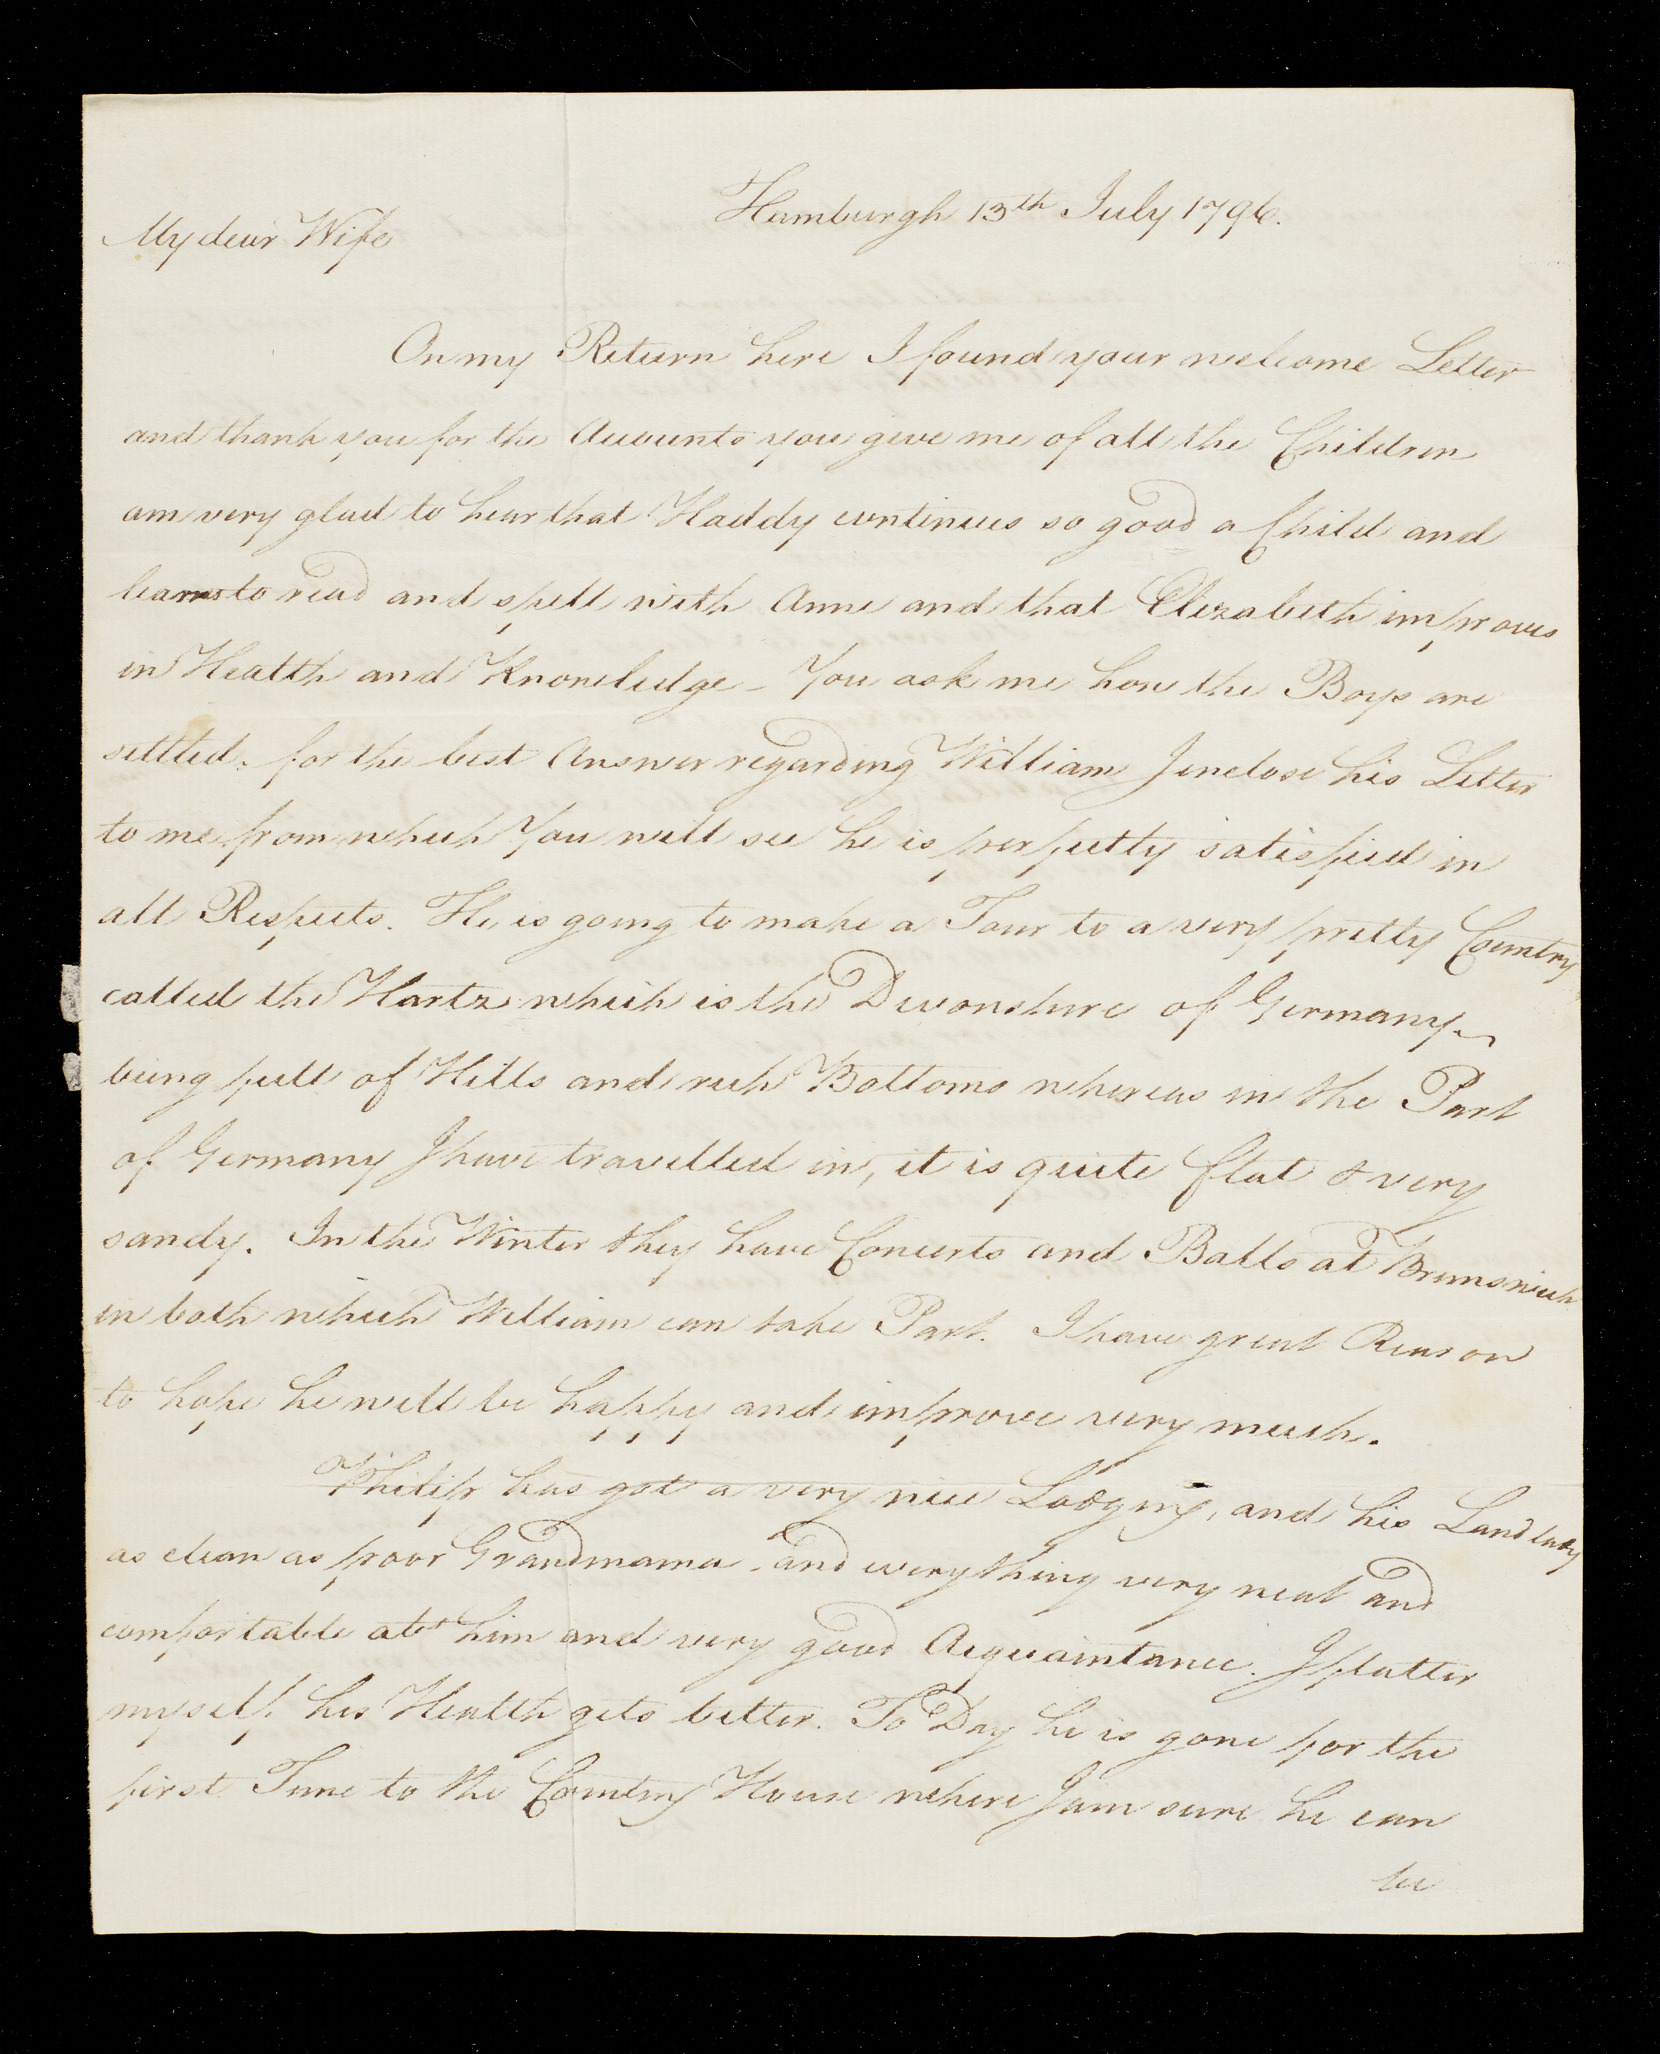 Hamburgh 13th July 1796.
My dear Wife
On my Return here I found your welcome Letter
and thank you for the Accounts you give me of all the Children
am very glad to hear that Haddy continues so good a Child and
learns to read and spell with Anne and that Elizabeth improves
in Health and Knowledge - You ask me how the Boys are
settled. for the best Answer regarding William I enclose his Letter
to me from which You will see he is perfectly satisfied in
all Respects. He is going to make a Tour to a very pretty Country
called the Hartz which is the Devonshire of Germany
being full of Hills and rich Bottoms whereas in the Part
of Germany I have travelled in, it is quite flat & very
sandy. In the Winter they have Concerts and Balls at Brunswick
in both which William can take Part. I have great Reason
to hope he will be happy and improve very much.
Philip has got a very nice Lodging, and his Landlady
as clean as poor Grandmama and every thing very neat and
comfortable abt him and very good Acquaintance. I flatter
myself his Health gets better. To Day he is gone for the
first Time to the Country House where I am sure he can
be